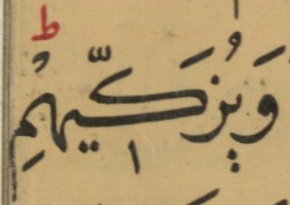 ط
وَيُزَكِّيهِمْ